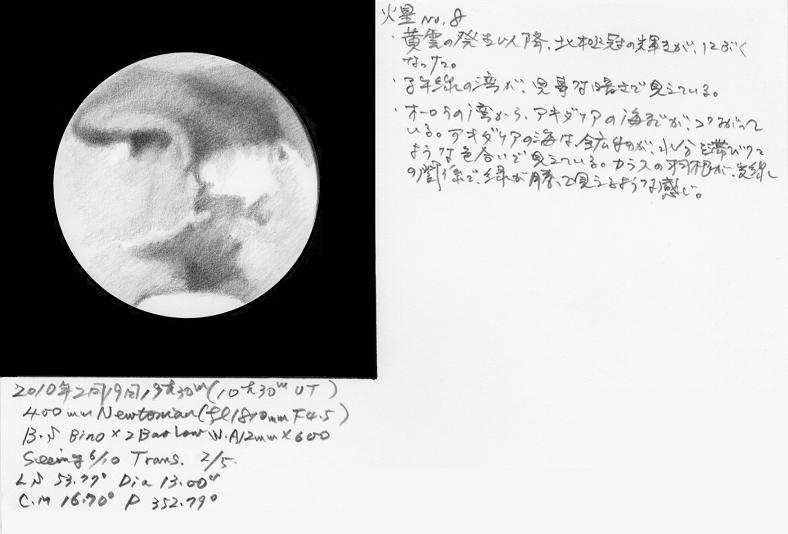 火星 No.8
・黄雲の発生以降、北極冠の輝きが、にぶく
なった。
・子午線の湾が、見事な暗さで見えている。
・オーロラの湾から、アキダリアの海までが、つながって
いる。アキダリアの海は、全体が、水分を帯びた
ような色合いで見えている。カラスの羽根が、光線
の関係で、緑が勝って見えるような感じ。
2010年2月19日19h30m(10h30m UT)
400mm Newtonian(fl1810mm F4.5)
Bino x2 Barlow W.A12mm x600
Seeing 6/10 Trans. 2/5.
LS 53.77° Dia 13.00"
C.M 16.70° P 352.79°